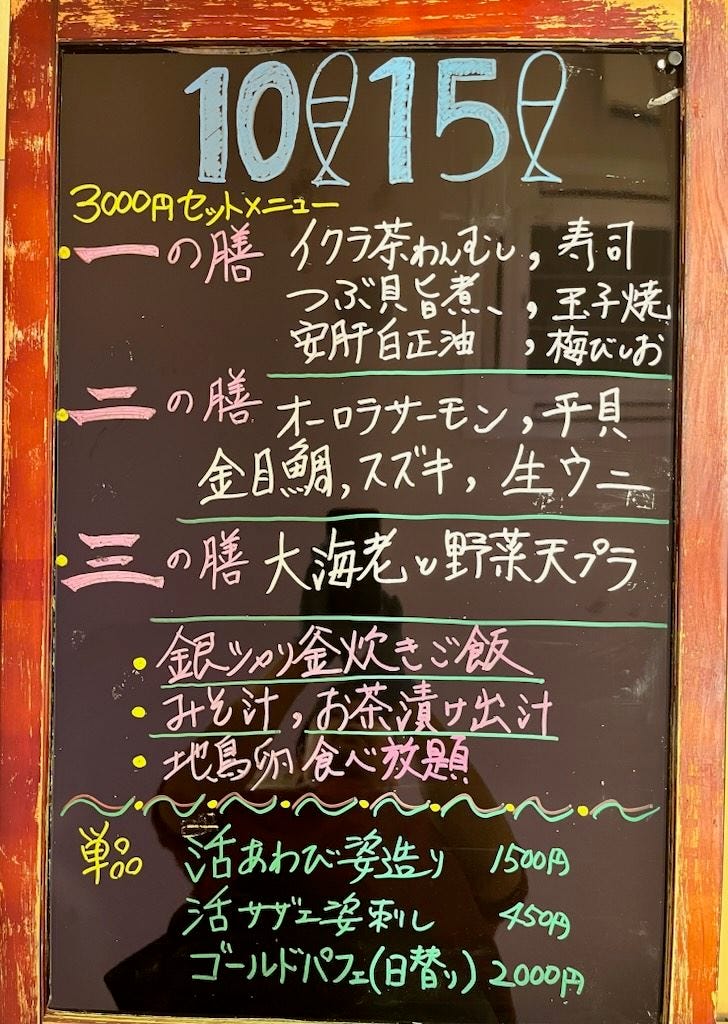 10 15
3000円セットメニュー
・一の膳 イクラ茶わんむし, 寿司
つぶ貝旨煮, 玉子焼
安肝白正油, 梅びしお
・二の膳 オーロラサーモン, 平貝
金目鯛, スズキ, 生ウニ
・三の膳 大海老と野菜天プラ
・銀シャリ釜炊きご飯
・みそ汁, お茶漬け出汁
・地鳥卵食べ放題
単品 活あわび姿造り 1500円
活サザエ姿刺し 450円
ゴールドパフェ(日替り) 2000円